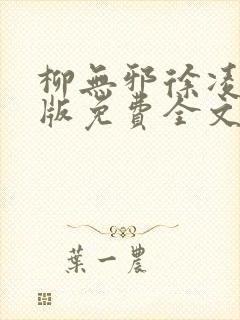 柳無邪徐凌
版免費全文
葉一農